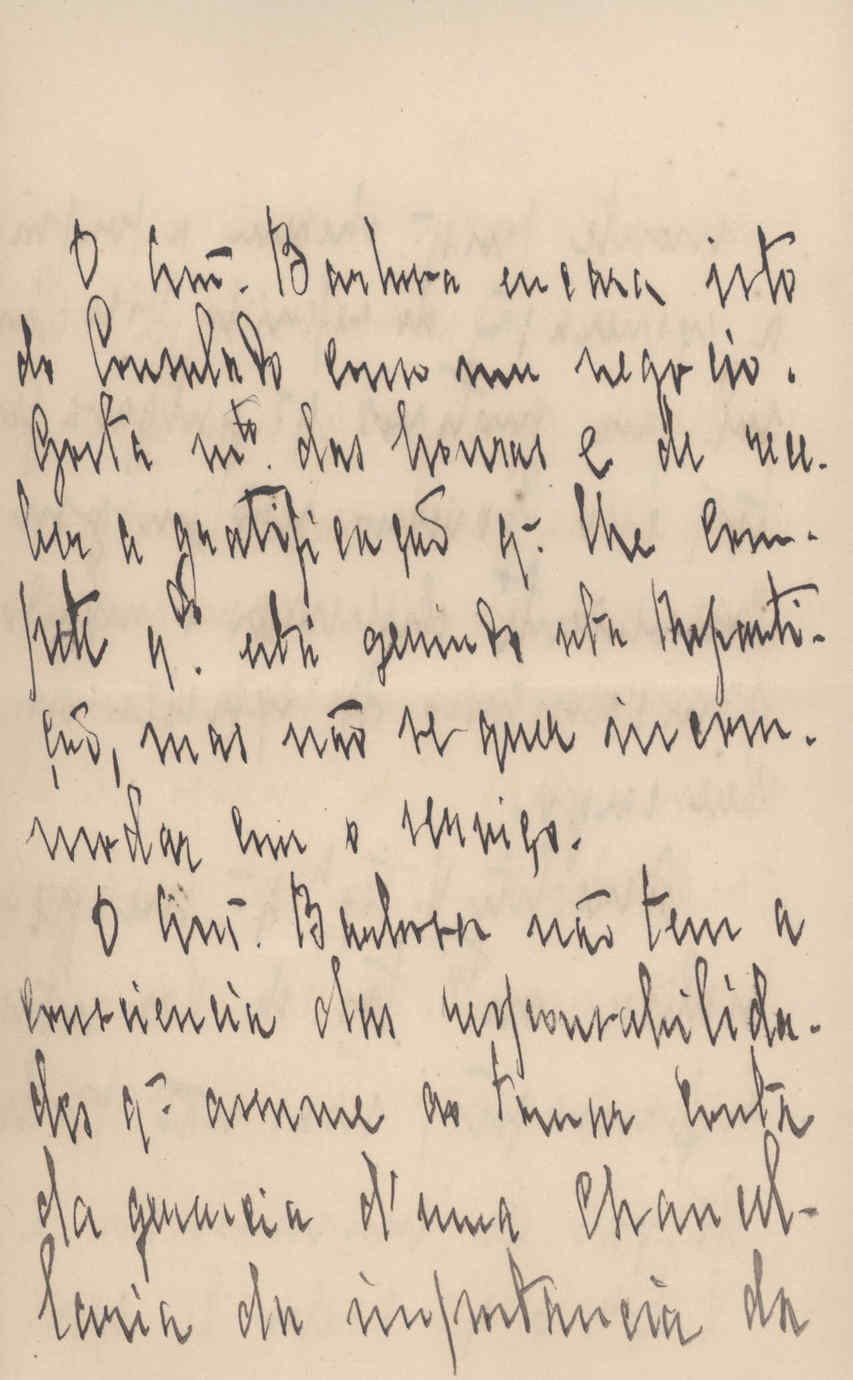 O Snr. Barbosa encara isto
do Consulado como um negocio.
Gosta mto. das honras e de rece-
ber a gratificação q. lhe com-
pete qdo. está gerindo esta Reparti-
ção, mas não se quer incom-
modar com o serviço.
O Snr. Barbosa não tem a
consciencia das responsabilida-
des q. assume ao tomar conta
da gerencia d'uma Chancel-
laria da importancia da